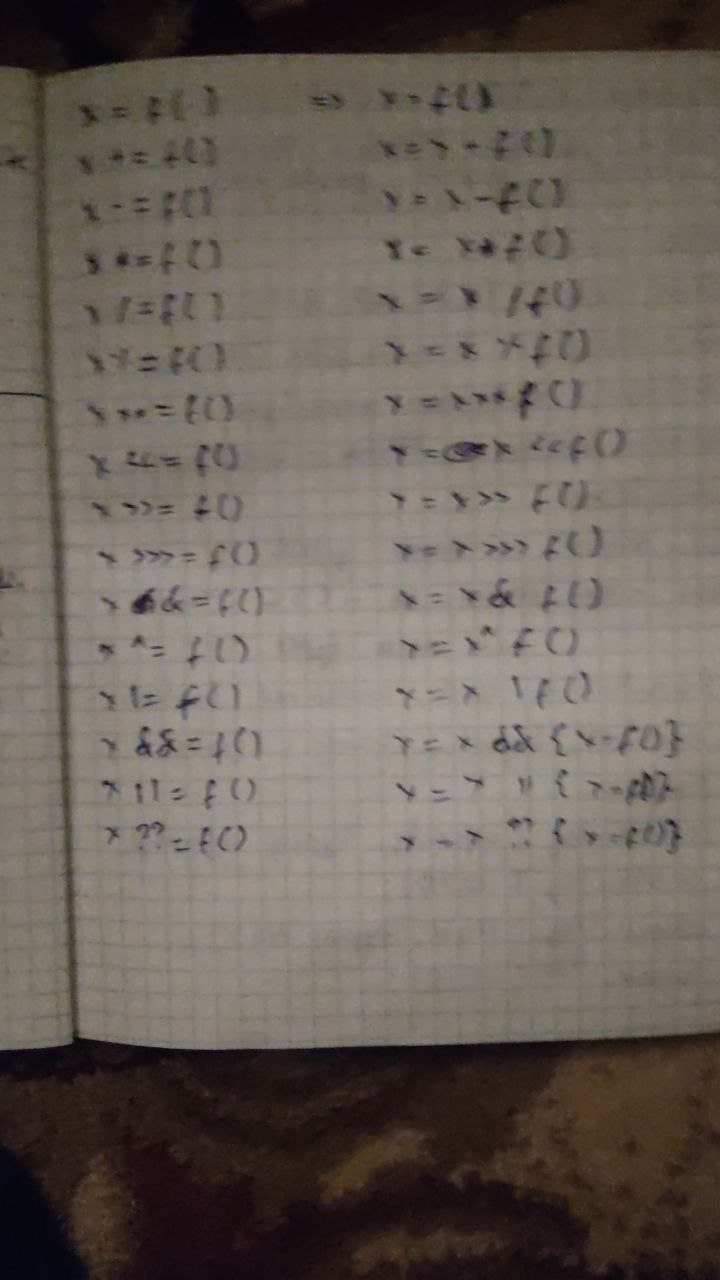 x = f() => x = f()
x += f() x = x + f()
x -= f() x = x - f()
x *= f() x = x * f()
x /= f() x = x / f()
x %= f() x = x % f()
x **= f() x = x ** f()
x <<= f() x = x << f()
x >>= f() x = x >> f()
x >>>= f() x = x >>> f()
x &= f() x = x & f()
x ^= f() x = x ^ f()
x |= f() x = x | f()
x &&= f() x = x && {x=f()}
x ||= f() x = x || {x=f()}
x ??= f() x = x ?? {x=f()}